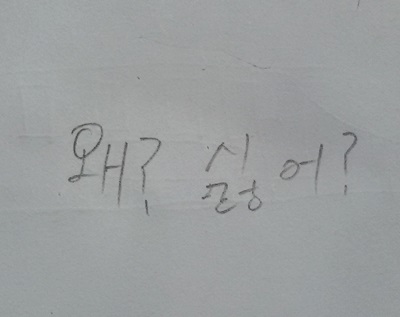 왜? 싫어?